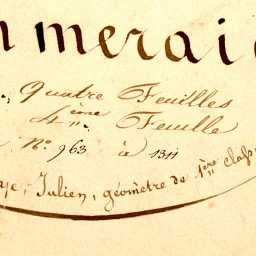 n merai
Quatre Feuilles
4ème Feuille
N° 963 à 1311
Julien, géomètre de 1ère class